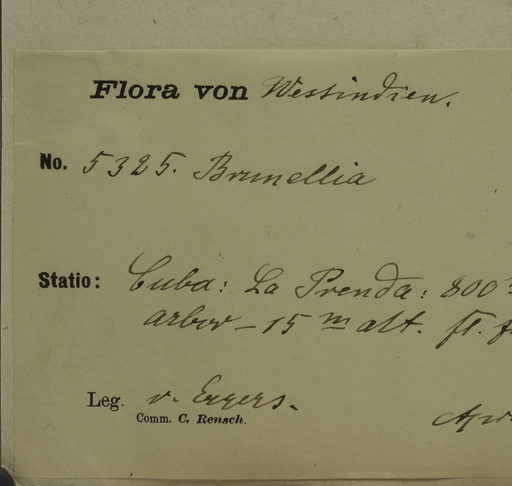 Flora von Westindien.
No. 5325. Brunellia
Statio: Cuba: La Prenda: 800
arbor - 15 m alt. fl.
Leg. v. Eggers.
Comm. C. Rensch.